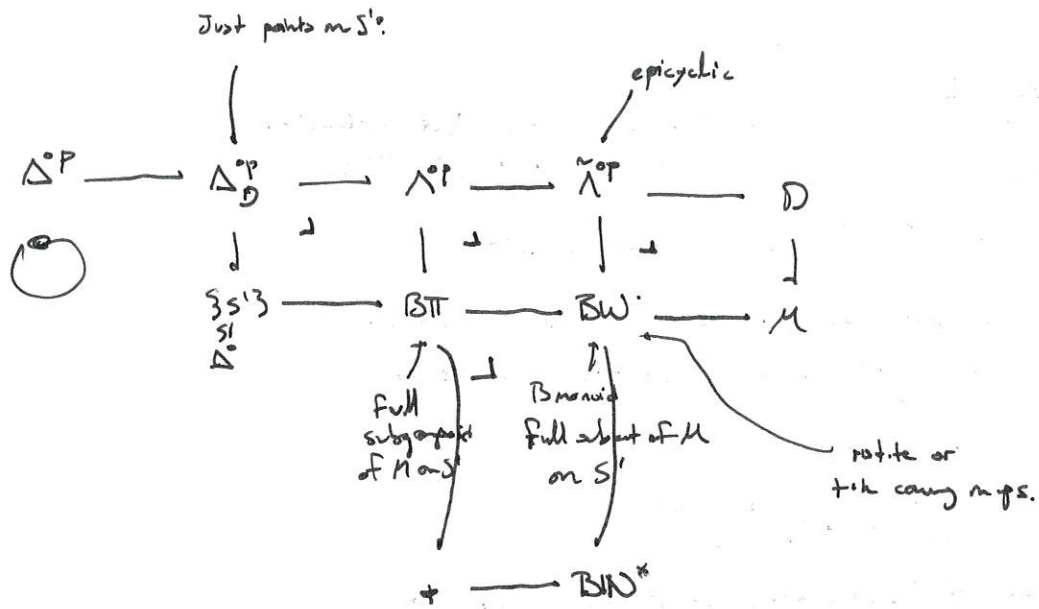 Just points on S¹?
epicyclic
Δ^op Δ_D^op Λ^op Λ̃^op D
{S¹} BΠ BW M
S|
Δ°
Full
subgroupoid
of M on S¹
B monoid
full subcat of M
on S¹
rotate or
take covering maps.
* BIN^*